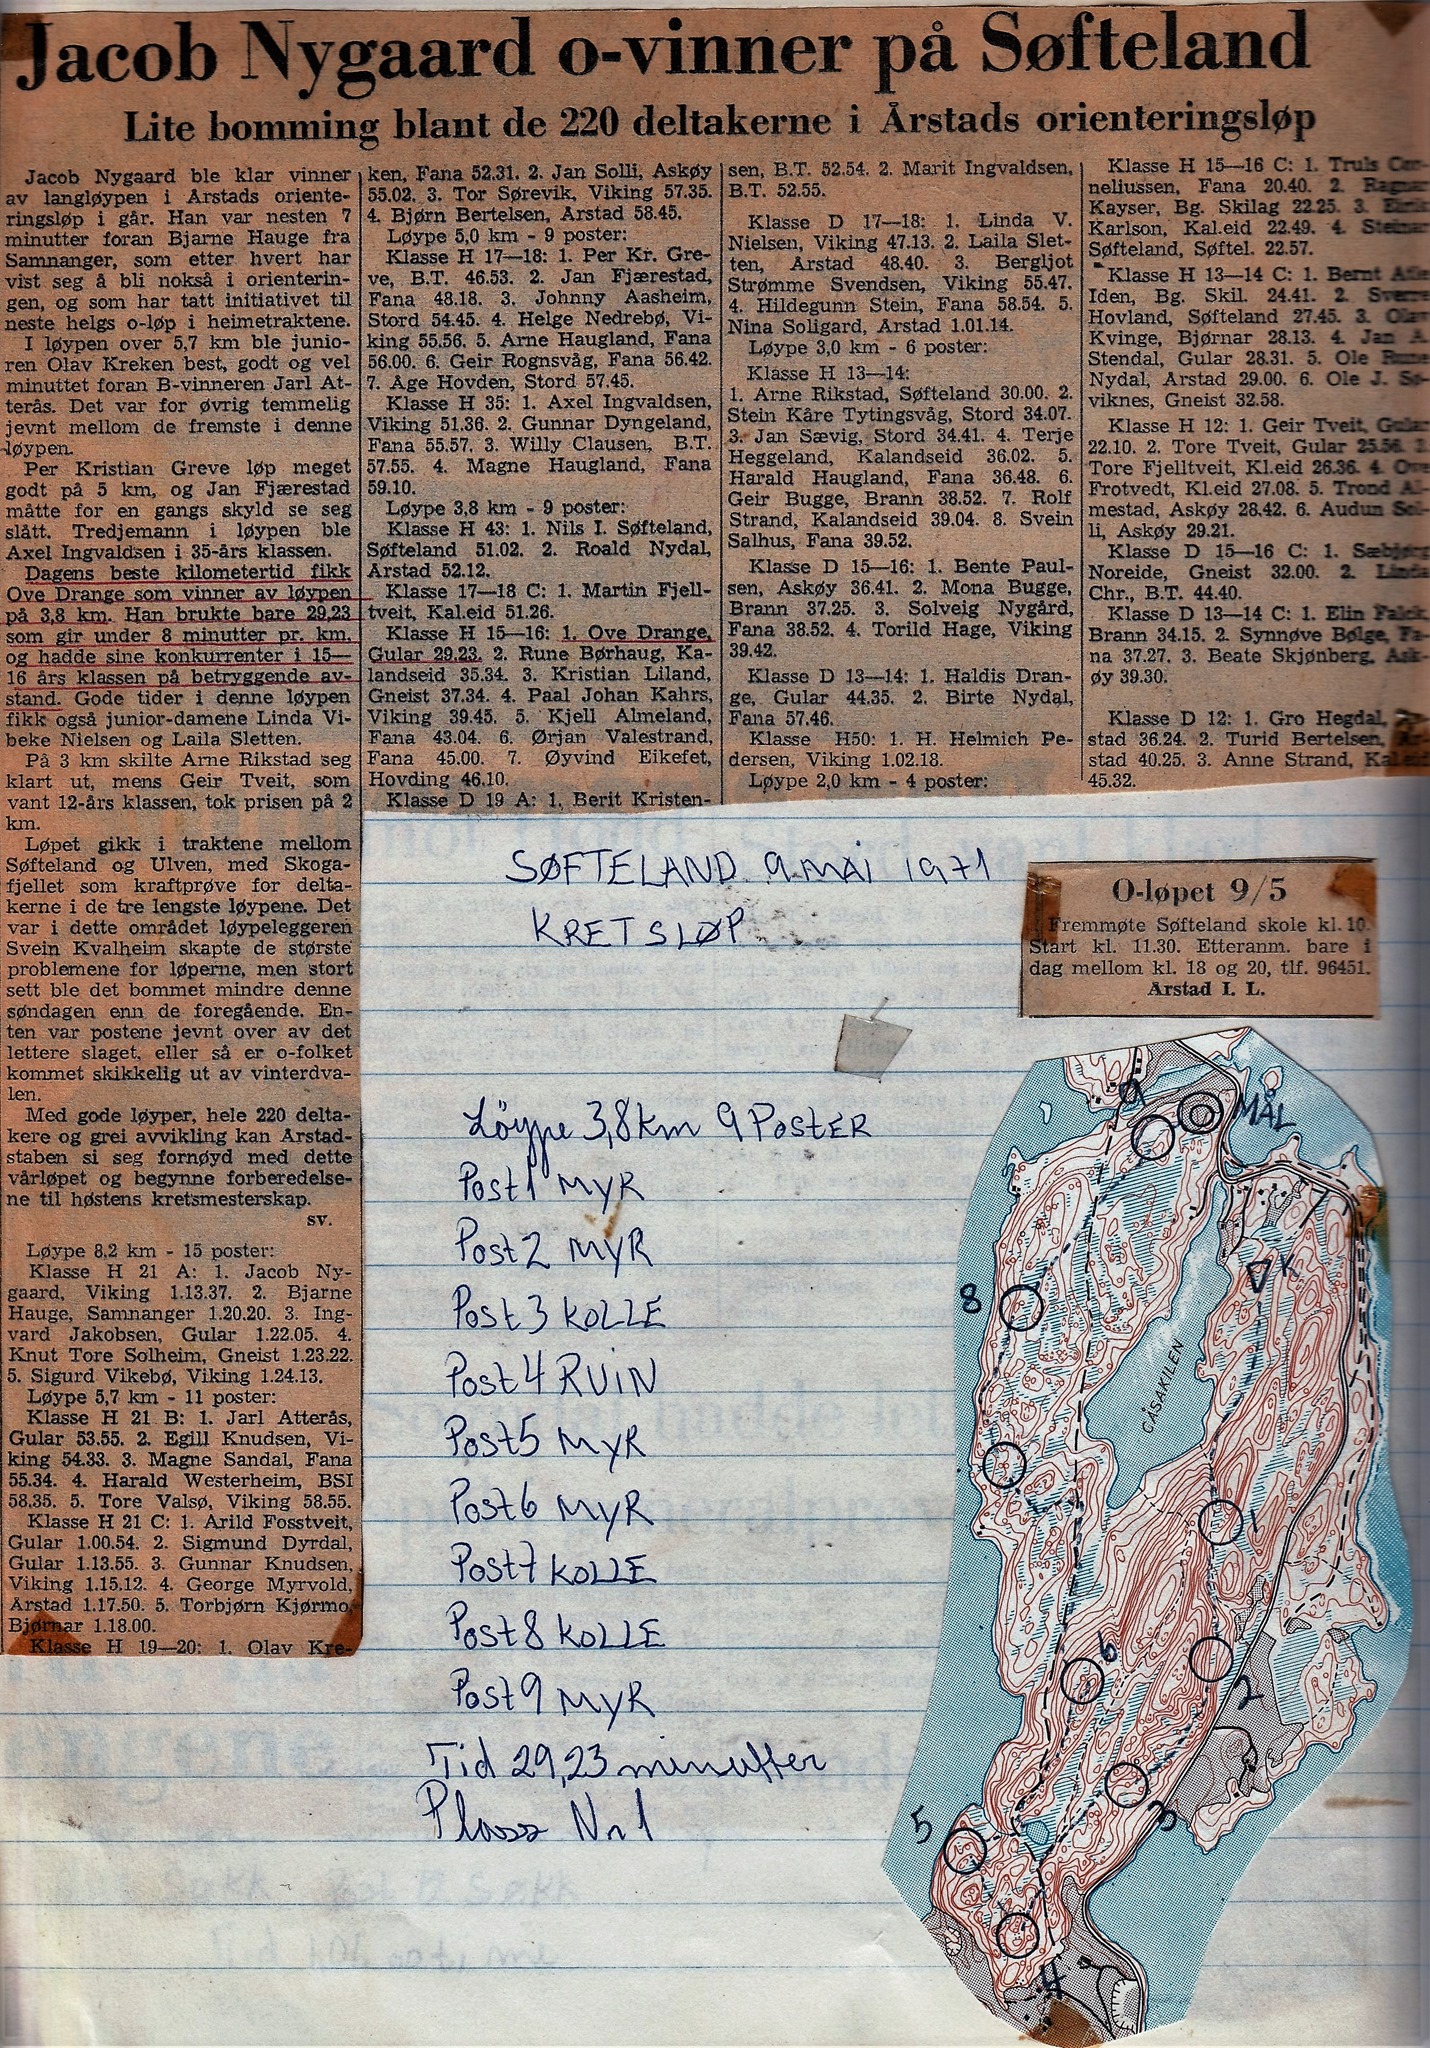 Jacob Nygaard o-vinner på Søfteland
Lite bomming blant de 220 deltakerne i Årstads orienteringsløp
Jacob Nygaard ble klar vinner
av langløypen i Årstads oriente-
ringsløp i går. Han var nesten 7
minutter foran Bjarne Hauge fra
Samnanger, som etter hvert har
vist seg å bli nokså i orienterin-
gen, og som har tatt initiativet til
neste helgs o-løp i heimetraktene.
I løypen over 5,7 km ble junio-
ren Olav Kreken best, godt og vel
minuttet foran B-vinneren Jarl At-
terås. Det var for øvrig temmelig
jevnt mellom de fremste i denne
løypen.
Per Kristian Greve løp meget
godt på 5 km, og Jan Fjærestad
måtte for en gangs skyld se seg
slått. Tredjemann i løypen ble
Axel Ingvaldsen i 35-års klassen.
Dagens beste kilometertid fikk
Ove Drange som vinner av løypen
på 3,8 km. Han brukte bare 29,23
som gir under 8 minutter pr. km.
og hadde sine konkurrenter i 15—
16 års klassen på betryggende av-
stand. Gode tider i denne løypen
fikk også junior-damene Linda Vi-
beke Nielsen og Laila Sletten.
På 3 km skilte Arne Rikstad seg
klart ut, mens Geir Tveit, som
vant 12-års klassen, tok prisen på 2
km.
Løpet gikk i traktene mellom
Søfteland og Ulven, med Skoga-
fjellet som kraftprøve for delta-
kerne i de tre lengste løypene. Det
var i dette området løypeleggeren
Svein Kvalheim skapte de største
problemene for løperne, men stort
sett ble det bommet mindre denne
søndagen enn de foregående. En-
ten var postene jevnt over av det
lettere slaget, eller så er o-folket
kommet skikkelig ut av vinterdva-
len.
Med gode løyper, hele 220 delta-
kere og grei avvikling kan Årstad-
staben si seg fornøyd med dette
vårløpet og begynne forberedelse-
ne til høstens kretsmesterskap.
sv.
Løype 8,2 km - 15 poster:
Klasse H 21 A: 1. Jacob Ny-
gaard, Viking 1.13.37. 2. Bjarne
Hauge, Samnanger 1.20.20. 3. Ing-
vard Jakobsen, Gular 1.22.05. 4.
Knut Tore Solheim, Gneist 1.23.22.
5. Sigurd Vikebø, Viking 1.24.13.
Løype 5,7 km - 11 poster:
Klasse H 21 B: 1. Jarl Atterås,
Gular 53.55. 2. Egill Knudsen, Vi-
king 54.33. 3. Magne Sandal, Fana
55.34. 4. Harald Westerheim, BSI
58.35. 5. Tore Valsø, Viking 58.55.
Klasse H 21 C: 1. Arild Fosstveit,
Gular 1.00.54. 2. Sigmund Dyrdal,
Gular 1.13.55. 3. Gunnar Knudsen,
Viking 1.15.12. 4. George Myrvold,
Årstad 1.17.50. 5. Torbjørn Kjørmo,
Bjørnar 1.18.00.
Klasse H 19—20: 1. Olav Kre-
ken, Fana 52.31. 2. Jan Solli, Askøy
55.02. 3. Tor Sørevik, Viking 57.35.
4. Bjørn Bertelsen, Årstad 58.45.
Løype 5,0 km - 9 poster:
Klasse H 17-18: 1. Per Kr. Gre-
ve, B.T. 46.53. 2. Jan Fjærestad,
Fana 48.18. 3. Johnny Aasheim,
Stord 54.45. 4. Helge Nedrebø, Vi-
king 55.56. 5. Arne Haugland, Fana
56.00. 6. Geir Rognsvåg, Fana 56.42.
7. Åge Hovden, Stord 57.45.
Klasse H 35: 1. Axel Ingvaldsen,
Viking 51.36. 2. Gunnar Dyngeland,
Fana 55.57. 3. Willy Clausen, B.T.
57.55. 4. Magne Haugland, Fana
59.10.
Løype 3,8 km - 9 poster:
Klasse H 43: 1. Nils I. Søfteland,
Søfteland 51.02. 2. Roald Nydal,
Årstad 52.12.
Klasse 17—18 C: 1. Martin Fjell-
tveit, Kal.eid 51.26.
Klasse H 15—16: 1. Ove Drange,
Gular 29.23. 2. Rune Børhaug, Ka-
landseid 35.34. 3. Kristian Liland,
Gneist 37.34. 4. Paal Johan Kahrs,
Viking 39.45. 5. Kjell Almeland,
Fana 43.04. 6. Ørjan Valestrand,
Fana 45.00. 7. Øyvind Eikefet,
Hovding 46.10.
Klasse D 19 A: 1. Berit Kristen-
sen, B.T. 52.54. 2. Marit Ingvaldsen,
B.T. 52.55.
Klasse D 17—18: 1. Linda V.
Nielsen, Viking 47.13. 2. Laila Slet-
ten, Årstad 48.40. 3. Bergljot
Strømme Svendsen, Viking 55.47.
4. Hildegunn Stein, Fana 58.54. 5.
Nina Soligard, Årstad 1.01.14.
Løype 3,0 km - 6 poster:
Klasse H 13—14:
1. Arne Rikstad, Søfteland 30.00. 2.
Stein Kåre Tytingsvåg, Stord 34.07.
3. Jan Sævig, Stord 34.41. 4. Terje
Heggeland, Kalandseid 36.02. 5.
Harald Haugland, Fana 36.48. 6.
Geir Bugge, Brann 38.52. 7. Rolf
Strand, Kalandseid 39.04. 8. Svein
Salhus, Fana 39.52.
Klasse D 15—16: 1. Bente Paul-
sen, Askøy 36.41. 2. Mona Bugge,
Brann 37.25. 3. Solveig Nygård,
Fana 38.52. 4. Torild Hage, Viking
39.42.
Klasse D 13—14: 1. Haldis Dran-
ge, Gular 44.35. 2. Birte Nydal,
Fana 57.46.
Klasse H50: 1. H. Helmich Pe-
dersen, Viking 1.02.18.
Løype 2,0 km - 4 poster:
Klasse H 15—16 C: 1. Truls Cor-
neliussen, Fana 20.40. 2. Ragnar
Kayser, Bg. Skilag 22.25. 3. Eirik
Karlson, Kal.eid 22.49. 4. Steinar
Søfteland, Søftel. 22.57.
Klasse H 13—14 C: 1. Bernt Atle
Iden, Bg. Skil. 24.41. 2. Sverre
Hovland, Søfteland 27.45. 3. Olav
Kvinge, Bjørnar 28.13. 4. Jan A.
Stendal, Gular 28.31. 5. Ole Rune
Nydal, Årstad 29.00. 6. Ole J. Sø-
viknes, Gneist 32.58.
Klasse H 12: 1. Geir Tveit, Gular
22.10. 2. Tore Tveit, Gular 25.56.
Tore Fjelltveit, Kl.eid 26.36. 4. Ove
Frotvedt, Kl.eid 27.08. 5. Trond Al-
mestad, Askøy 28.42. 6. Audun Sol-
li, Askøy 29.21.
Klasse D 15—16 C: 1. Sæbjørg
Noreide, Gneist 32.00. 2. Linda
Chr., B.T. 44.40.
Klasse D 13—14 C: 1. Elin Falck,
Brann 34.15. 2. Synnøve Bølge, Fa-
na 37.27. 3. Beate Skjønberg, Ask-
øy 39.30.
Klasse D 12: 1. Gro Hegdal, År-
stad 36.24. 2. Turid Bertelsen, År-
stad 40.25. 3. Anne Strand, Kaleid
45.32.
SØFTELAND 9.MAI 1971
KRETSLØP
O-løpet 9/5
Fremmøte Søfteland skole kl. 10.
Start kl. 11.30. Etteranm. bare i
dag mellom kl. 18 og 20, tlf. 96451.
Årstad I. L.
Löype 3,8 km 9 POSTER
Post 1 MYR
Post 2 MYR
Post 3 KOLLE
Post 4 RUIN
Post 5 MYR
Post 6 MYR
Post 7 KOLLE
Post 8 KOLLE
Post 9 MYR
Tid 29,23 minutter
Plass Nr 1
9
MÅL
K
8
GÅSAKILEN
1
6
2
3
5
4